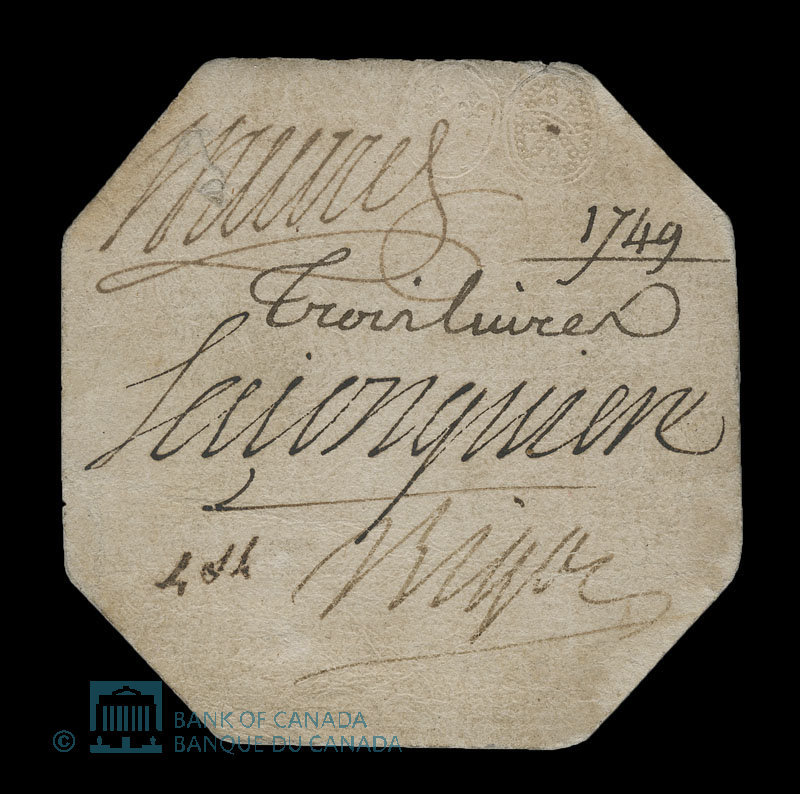 1749
Trois livres
Lajonquiere
Bigot
© BANK OF CANADA
BANQUE DU CANADA